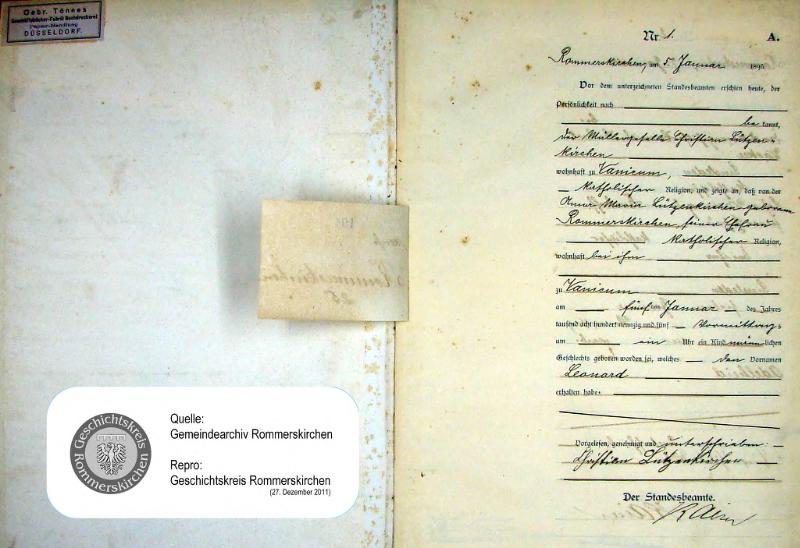 Gebr. Tönnes
Geschäftsbücher-Fabrik Buchdruckerei
Papier-Handlung
DÜSSELDORF.
Nr. 1. A.
Rommerskirchen, am 5. Januar 1895
Vor dem unterzeichneten Standesbeamten erschien heute, der
Persönlichkeit nach
bekannt,
der Müllergeselle Christian Lützen-
kirchen
wohnhaft zu Vanicum,
katholischer Religion, und zeigte an, daß von der
Anna Maria Lützenkirchen geborenen
Rommerskirchen, seiner Ehefrau
katholischer Religion,
wohnhaft bei ihm
zu Vanicum
am fünften Januar des Jahres
tausend acht hundert neunzig und fünf Vormittags
um ein Uhr ein Kind männlichen
Geschlechts geboren worden sei, welches den Vornamen
Leonard
erhalten habe.
Vorgelesen, genehmigt und unterschrieben:
Christian Lützenkirchen
Der Standesbeamte.
Geschichtskreis
Rommerskirchen
Quelle:
Gemeindearchiv Rommerskirchen
Repro:
Geschichtskreis Rommerskirchen
(27. Dezember 2011)